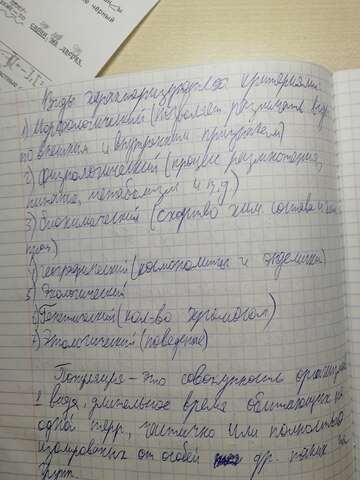 Виды характеризуются критериями:
1) Морфологический (позволяет различать виды
по внешним и внутренним признакам)
2) физиологический (процес размножения,
питание, метаболизм и т.д)
3) биохимический (сходство хим состава и
проц)
4) географический (космополиты и эндемики)
5) Экологический
6) Генетический (кол-во хромосом)
7) Этологический (поведение)
Популяция - это совокупность организмов
1 вида, длительное время обитающих на
одной терр, частично или полностью
изолированых от особей др. таких же
групп.